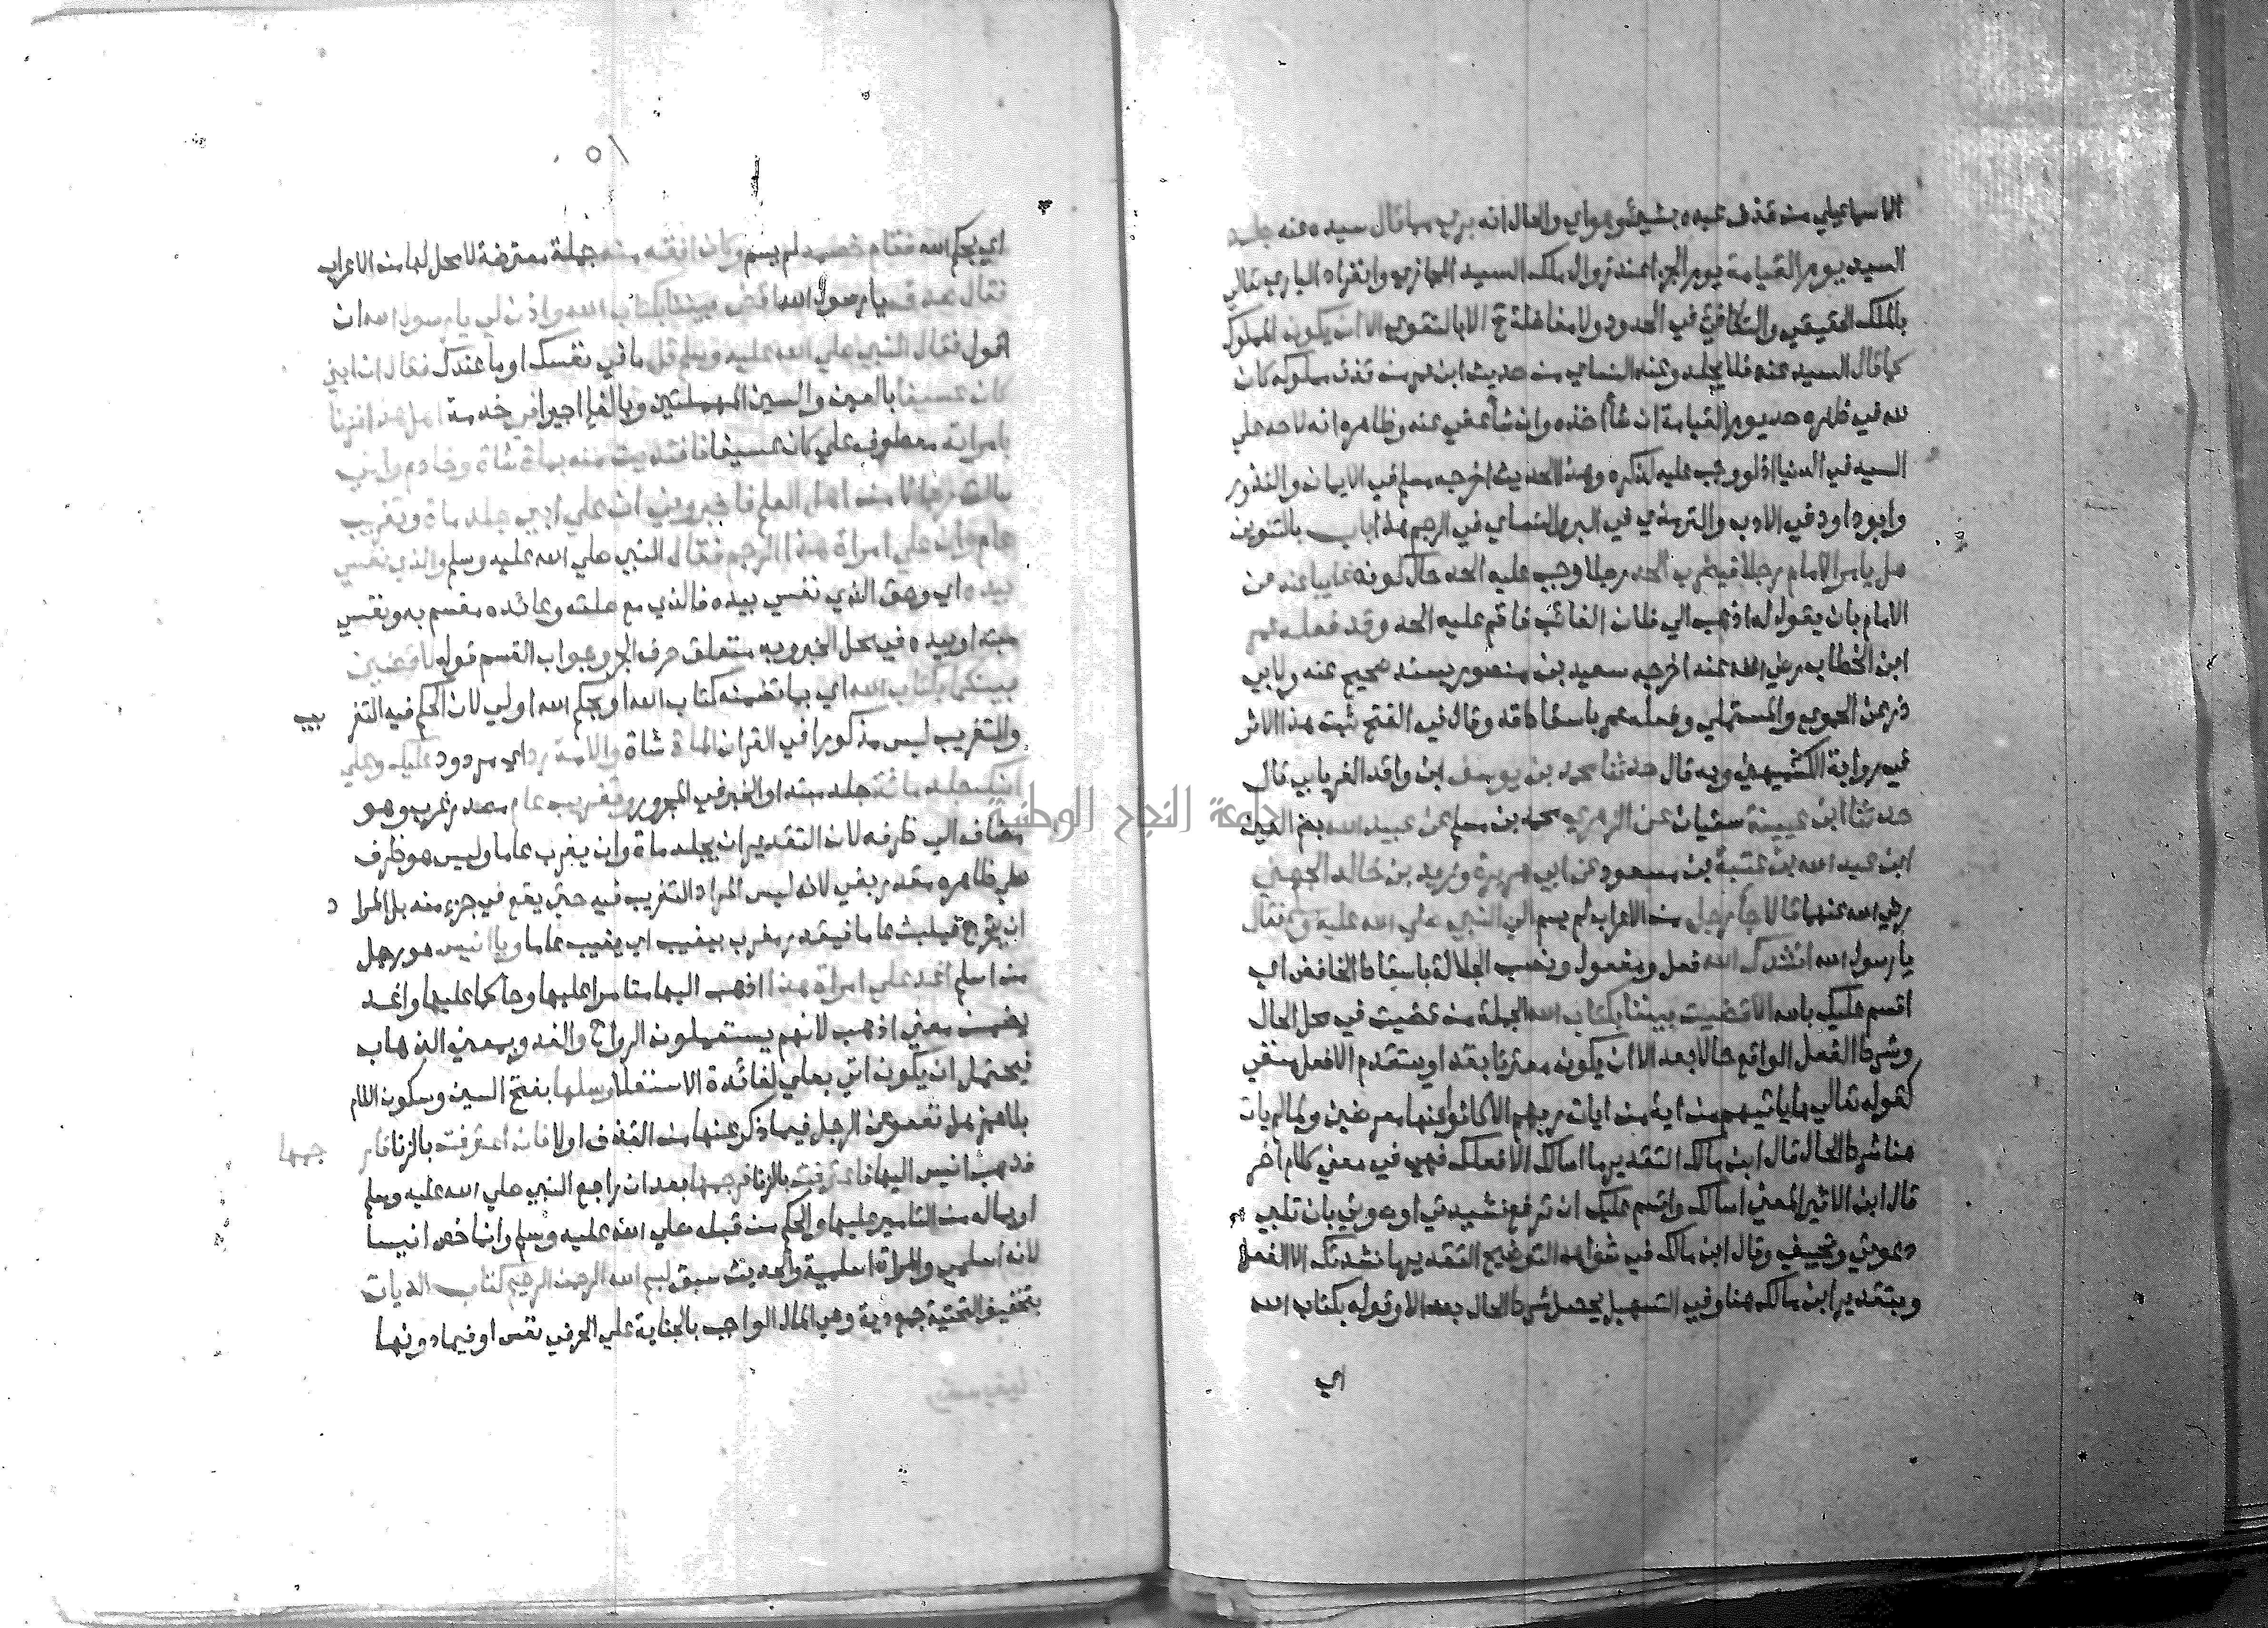 الاسماعيلي من قذف عبده بشيئ وهو اي والحال انه بريئ مما قال سيده عنه جلد
السيد يوم القيامة يوم الجزا عند زوال ملك السيد المجازي وانفراد الباري تعالي
بالملك الحقيقي والتكافئ في الحدود ولا مفاضلة ح الا بالتقوي الا ان يكون المملوك
كما قال السيد عنه فلا يجلد وعند النساي من حديث ابن عمر من قذف مملوكه كان
لله في ظهره حد يوم القيامة ان شأ اخذه وان شأ عفي عنه وظاهره انه لا حد علي
السيد في الدنيا اذ لو وجب عليه لذكره وهذا الحديث اخرجه مسلم في الايمان والنذور
وابو داود في الادب والترمذي في البر والنساي في الرجم هذا باب بالتنوين
هل يامر الامام رجلا فيضرب الحد رجلا وجب عليه الحد حال كونه غايبا عنه عن
الامام بان يقول له اذهب الي فلان الغائب فاقم عليه الحد وقد فعله عمر
ابن الخطاب رضي الله عنه اخرجه سعيد بن منصور بسند صحيح عنه ولابي
ذر عن الحموي والمستملي وفعله عمر باسقاط قد وقال في الفتح ثبت هذا الاثر
في رواية الكشميهني وبه قال حدثنا محمد بن يوسف ابن واقد الفريابي قال
حدثنا ابن عيينة سفيان عن الزهري محمد بن مسلم عن عبيد الله بضم العين
ابن عبد الله بن عتبة بن مسعود عن ابي هريرة وزيد بن خالد الجهني
رضي الله عنهما قالا جأ رجل من الاعراب لم يسم الي النبي صلي الله عليه وسلم فقال
يا رسول الله انشدك الله فعل ومفعول ونصب الجلالة باسقاط الخافض اي
اقسم عليك بالله الا قضيت بيننا بكتاب الله الجملة من قضيت في محل الحال
وشرط الفعل الواقع حالا بعد الا ان يكون مقترنا بقد او يتقدم الا فعل منفي
كقوله تعالي ما ياتيهم من اية من ايات ربهم الا كانوا عنها معرضين ولما لم يات
هنا شرط الحال قال ابن مالك التقدير ما اسالك الا فعلك فهي في معني كلام اخر
قال ابن الاثير المعني اسالك واقسم عليك ان ترفع نشيدتي اوصوتي بان تلبي
دعوتي وتجيبني وقال ابن مالك في شواهد التوضيح التقدير ما نشدتك الا الفعل
وبتقدير ابن مالك هنا وفي التسهيل يحصل شرط الحال بعد الا وقوله بكتاب الله
اي
اي بحكم الله فقام خصمه لم يسم وكان افقه منه جملة معترضة لا محل لها من الاعراب
فقال صدق يا رسول الله اقض بيننا بكتاب الله واذن لي يا رسول الله ان
اقول فقال النبي صلي الله عليه وسلم قل ما في نفسك او ما عندك فقال ان ابني
كان عسيفا بالعين والسين المهملتين وبالفا اجيرا في خدمة اهل هذا فزنا
بامراته معطوف علي كان عسيفا فافتديت منه بماة شاة وخادم واني
سالت رجالا من اهل العلم فاخبروني ان علي ابني جلد ماة وتغريب
عام وان علي امراة هذا الرجم فقال النبي صلي الله عليه وسلم والذي نفسي
بيده اي وحق الذي نفسي بيده فالذي مع صلته وعائده مقسم به ونفسي
مبتدا وبيده في محل الخبر وبه متعلق حرف الجر وجواب القسم قوله لاقضين
بينكما بكتاب الله اي بما تضمنه كتاب الله او بحكم الله اولي لان الحكم فيه التغر يب
والتغريب ليس مذكورا في القران الماة شاة والامة رد اي مردود عليك وعلي
ابنك جلد مائة جلد مبتدا والخبر في المجرور وتغريب عام مصدر غرب وهو
مضاف الي ظرفه لان التقدير ان يجلد ماة وان يغرب عاما وليس هو ظرف
علي ظاهره مقدر بفي لانه ليس المراد التغريب فيه حتي يقع في جزء منه بل المرا د
ان يخرج فيلبث عاما فيقدر يغرب بيغيب اي يغيب عاما ويا انيس هو رجل
من اسلم اغد علي امراة هذا اذهب اليها متامرا عليها وحاكما عليها واغد
يضمن معني اذهب لانهم يستعملون الرواح والغدو بمعني الذهاب
فيحتمل ان يكون اتي بعلي لفائدة الاستعلا وسلها بفتح السين وسكون اللام
بلا همز هل تعفو عن الرجل فيما ذكر عنها من القذف اولا فان اعترفت بالزنا فار جمها
فذهب انيس اليها فاعترفت بالزنا فرجمها بعد ان راجع النبي صلي الله عليه وسلم
او بماله من التامير عليها والحكم من قبله صلي الله عليه وسلم وانما خص انيسا
لانه اسلمي والمراة اسلمية والحديث سبق بسم الله الرحمن الرحيم كتاب الديات
بتخفيف التحتية جمع دية وهي المال الواجب بالجناية علي الحر في نفس او فيما دونها
جامعة النجاح الوطنية